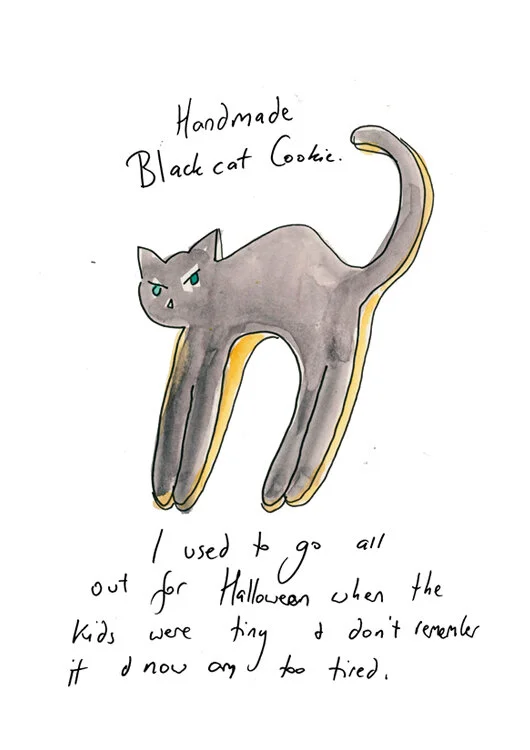 Handmade
Black cat Cookie.
I used to go all
out for Halloween when the
kids were tiny & don't remember
it & now am too tired.